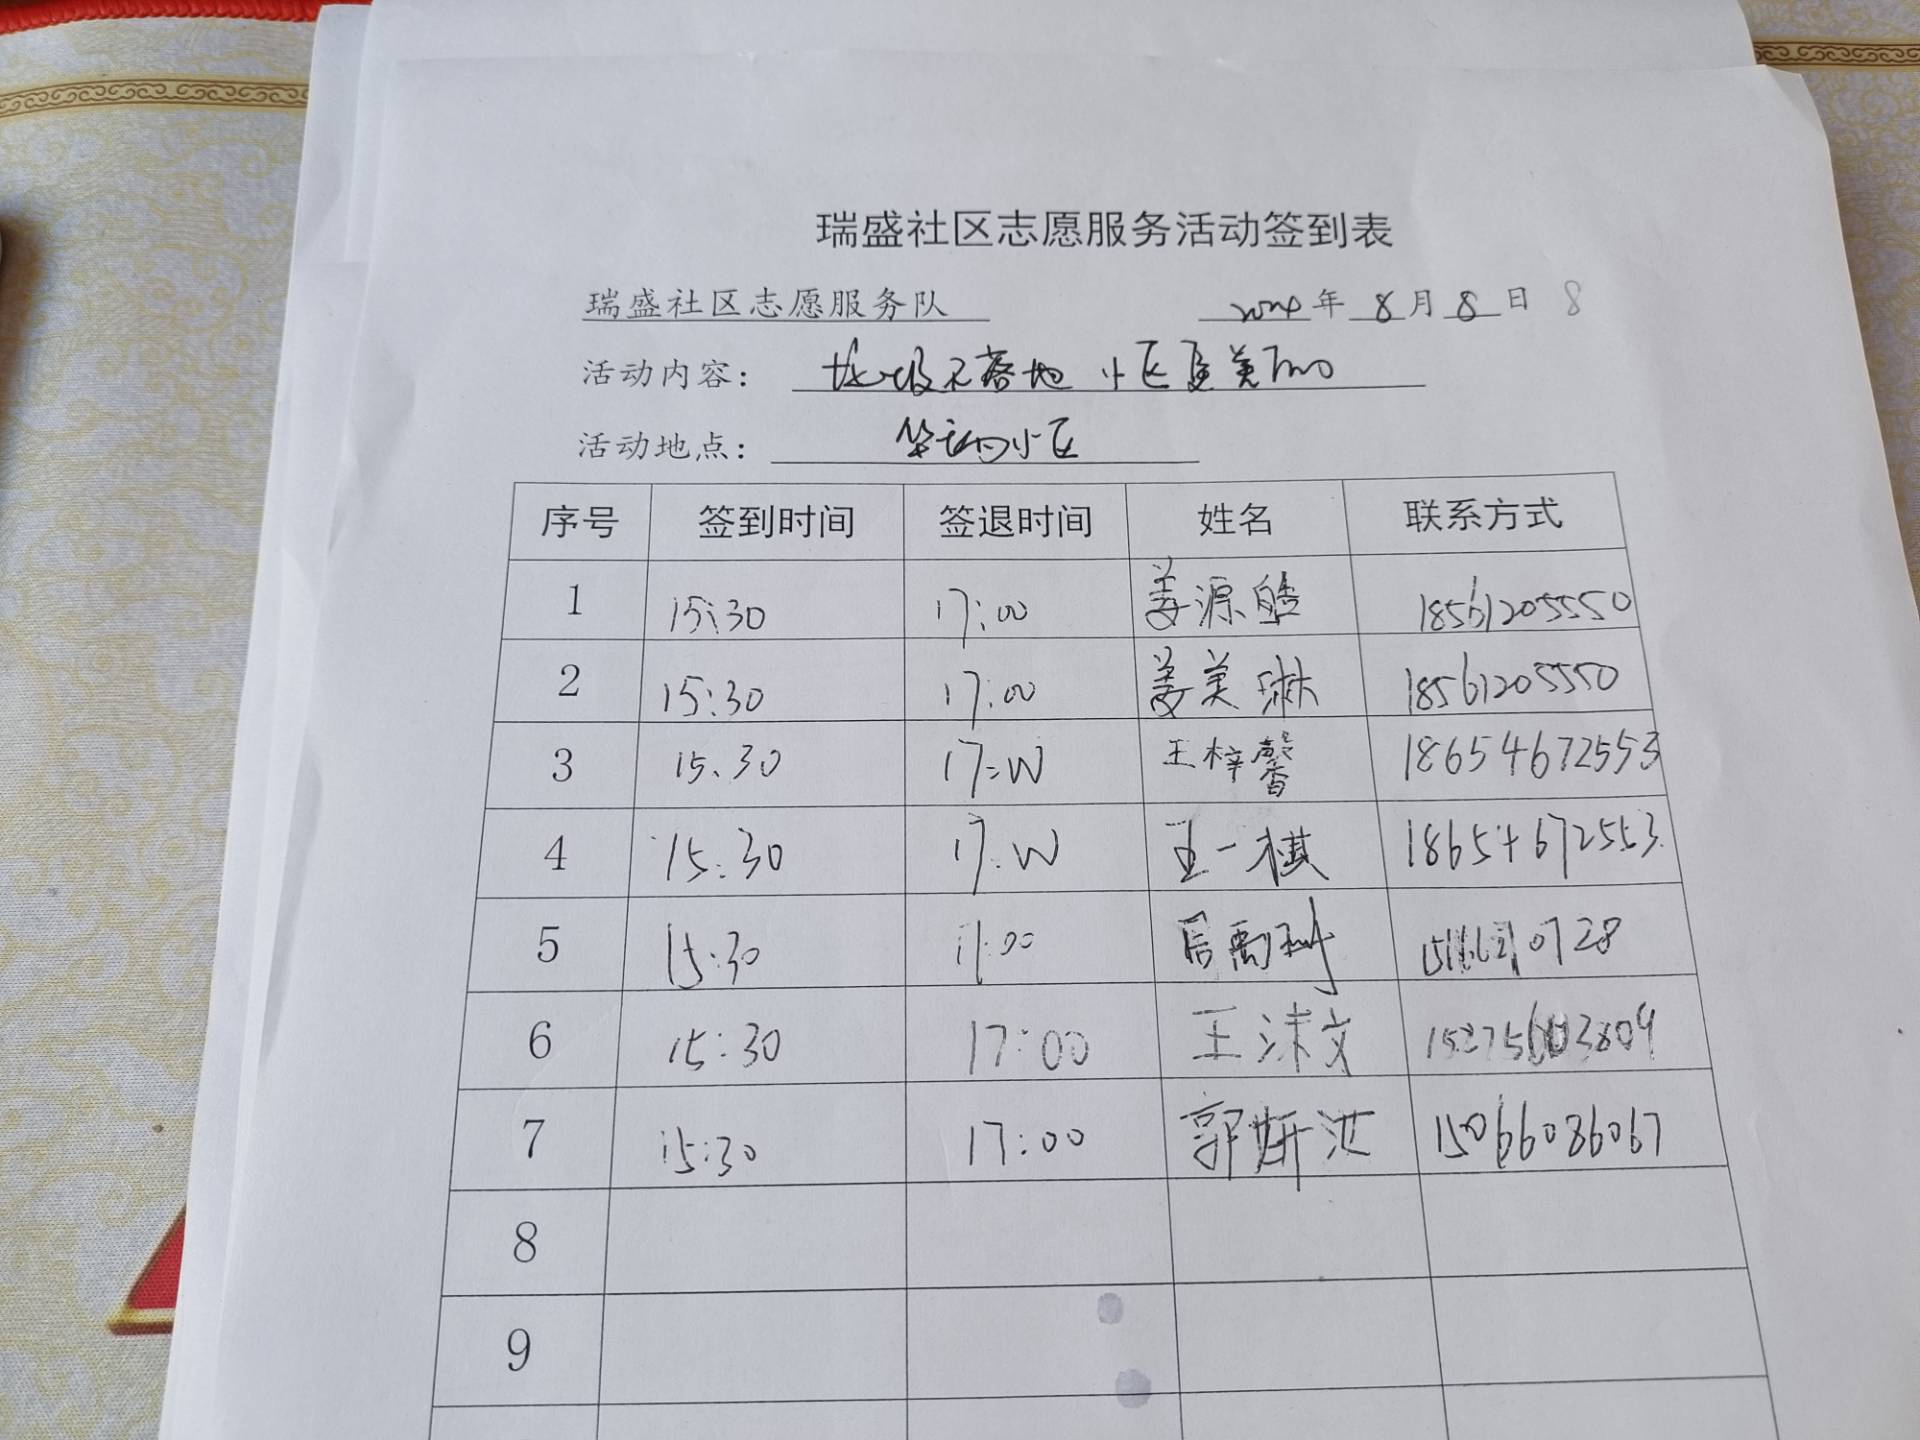 瑞盛社区志愿服务活动签到表
瑞盛社区志愿服务队 2024年 8月 8日 8
活动内容： 垃圾不落地 小区更美丽
活动地点： 小区
序号 签到时间 签退时间 姓名 联系方式
1 15:30 17:00 姜源皓 18561205550
2 15:30 17:00 姜美琳 18561205550
3 15:30 17:00 王梓馨 18654672553
4 15:30 17:00 王一棋 18654672553
5 15:30 17:00
6 15:30 17:00 王沫文
7 15:30 17:00 郭妍 15066086067
8
9